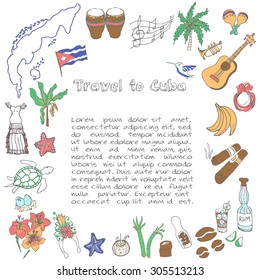 Travel to Cuba
Lorem ipsum dolor sit amet,
consectetur adipiscing elit, sed do
eiusmod tempor incididunt ut labore
et dolore magna aliqua. Ut enim ad
minim veniam, quis nostrud
exercitation ullamco laboris nisi ut
aliquip ex ea commodo consequat.
Duis aute irure dolor in
reprehenderit in voluptate velit esse
cillum dolore eu fugiat nulla pariatur.
Excepteur sint occaecat cupidatat
non proident, sunt in culpa qui
officia deserunt mollit anim id est
laborum.
RUM
shutterstock
IMAGE ID: 305513213
www.shutterstock.com